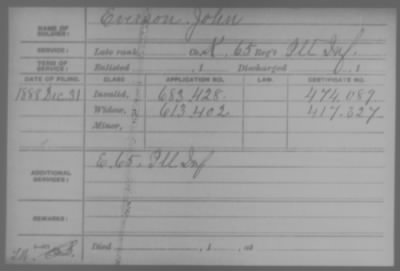 NAME OF SOLDIER: Everson, John
SERVICE: Late rank, Co. K, 65 Reg't Ill Inf.
TERM OF SERVICE: Enlisted , 1 Discharged , 1
DATE OF FILING. CLASS. APPLICATION NO. LAW. CERTIFICATE NO.
1888 Dec. 31 Invalid, 683.428 474.089
Widow, 613.402 417.327
Minor,
ADDITIONAL SERVICES: E. 65, Ill Inf
REMARKS:
Died , 1 , at